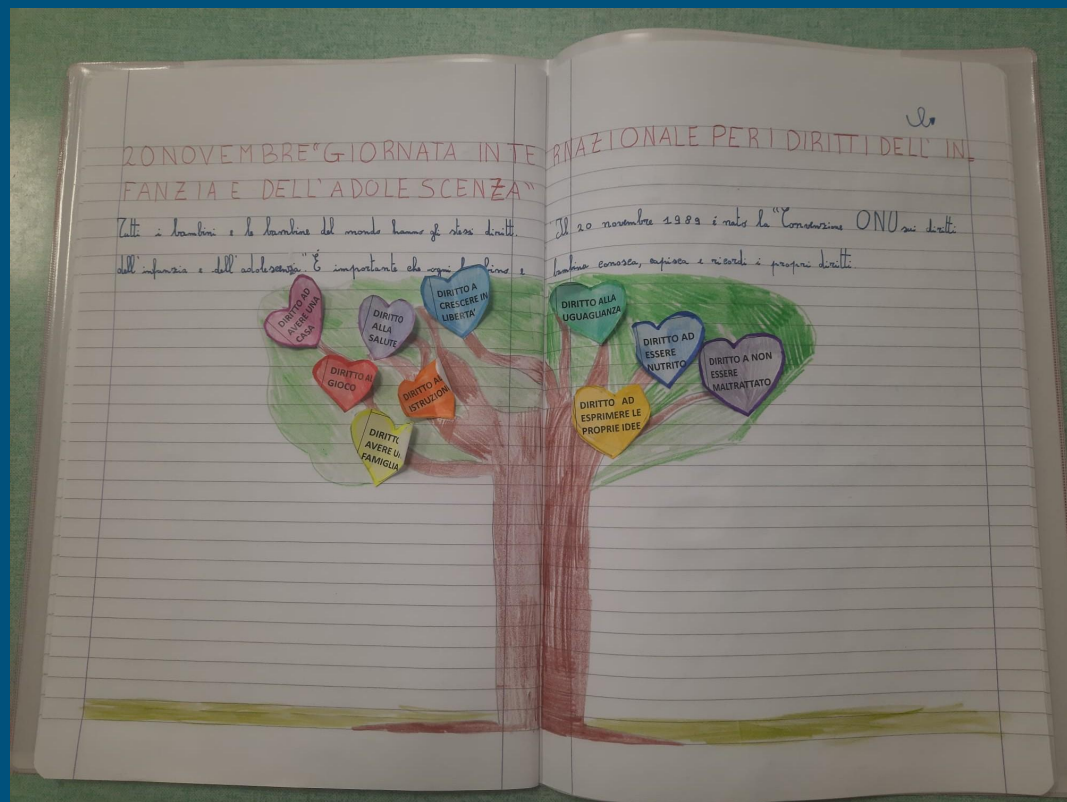 20 NOVEMBRE "GIORNATA INTERNAZIONALE PER I DIRITTI DELL' IN_
FANZIA E DELL'ADOLESCENZA"
Tutti i bambini e le bambine del mondo hanno gli stessi diritti. Il 20 novembre 1989 è nata la "Convenzione ONU sui diritti
dell'infanzia e dell'adolescenza". È importante che ogni bambino e bambina conosca, capisca e ricordi i propri diritti.
DIRITTO AD
AVERE UNA
CASA
DIRITTO
ALLA
SALUTE
DIRITTO A
CRESCERE IN
LIBERTA'
DIRITTO ALLA
UGUAGLIANZA
DIRITTO AD
ESSERE
NUTRITO
DIRITTO A NON
ESSERE
MALTRATTATO
DIRITTO AL
GIOCO
DIRITTO AL
ISTRUZION
DIRITTO AD
ESPRIMERE LE
PROPRIE IDEE
DIRITTO
AVERE U
FAMIGLIA